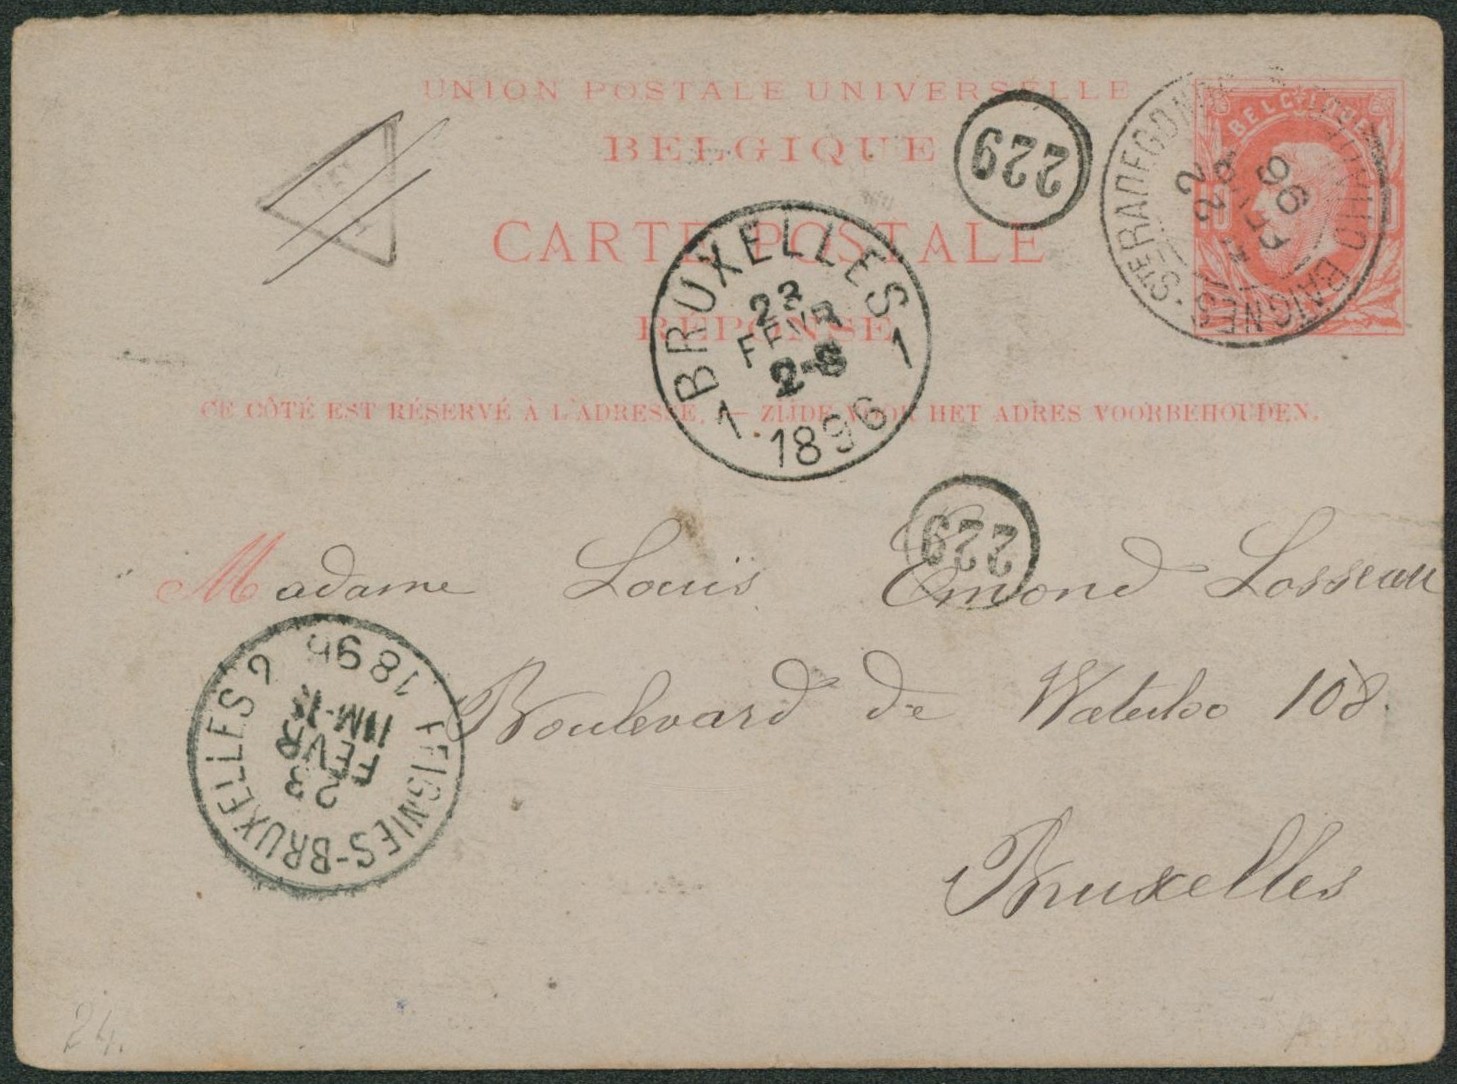 UNION POSTALE UNIVERSELLE
BELGIQUE
CARTE POSTALE
RÉPONSE
CE CÔTÉ EST RÉSERVÉ À L'ADRESSE. — ZIJDE VOOR HET ADRES VOORBEHOUDEN.
BELGIQUE
10
BAIGNES-STE RADEGONDE
22
96
229
BRUXELLES
23
FEVR
1 1
1896
229
Madame Louis Emond Losseau
Boulevard de Waterloo 108.
Bruxelles
FEIGNIES-BRUXELLES 2
23
FEVR
1896
24.